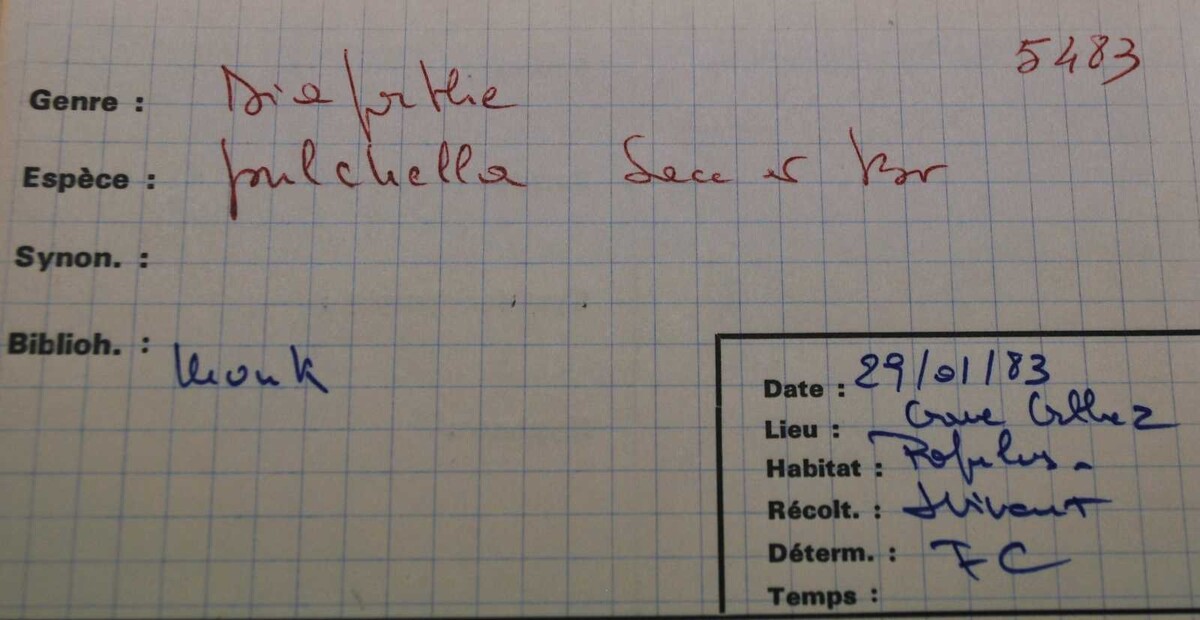 5483
Genre : Diaporthe
Espèce : pulchella Sacc et Br
Synon. :
Biblioh. :
Date : 29/01/83
Lieu : Orthez
Habitat : Populus.
Récolt. :
Déterm. : FC
Temps :